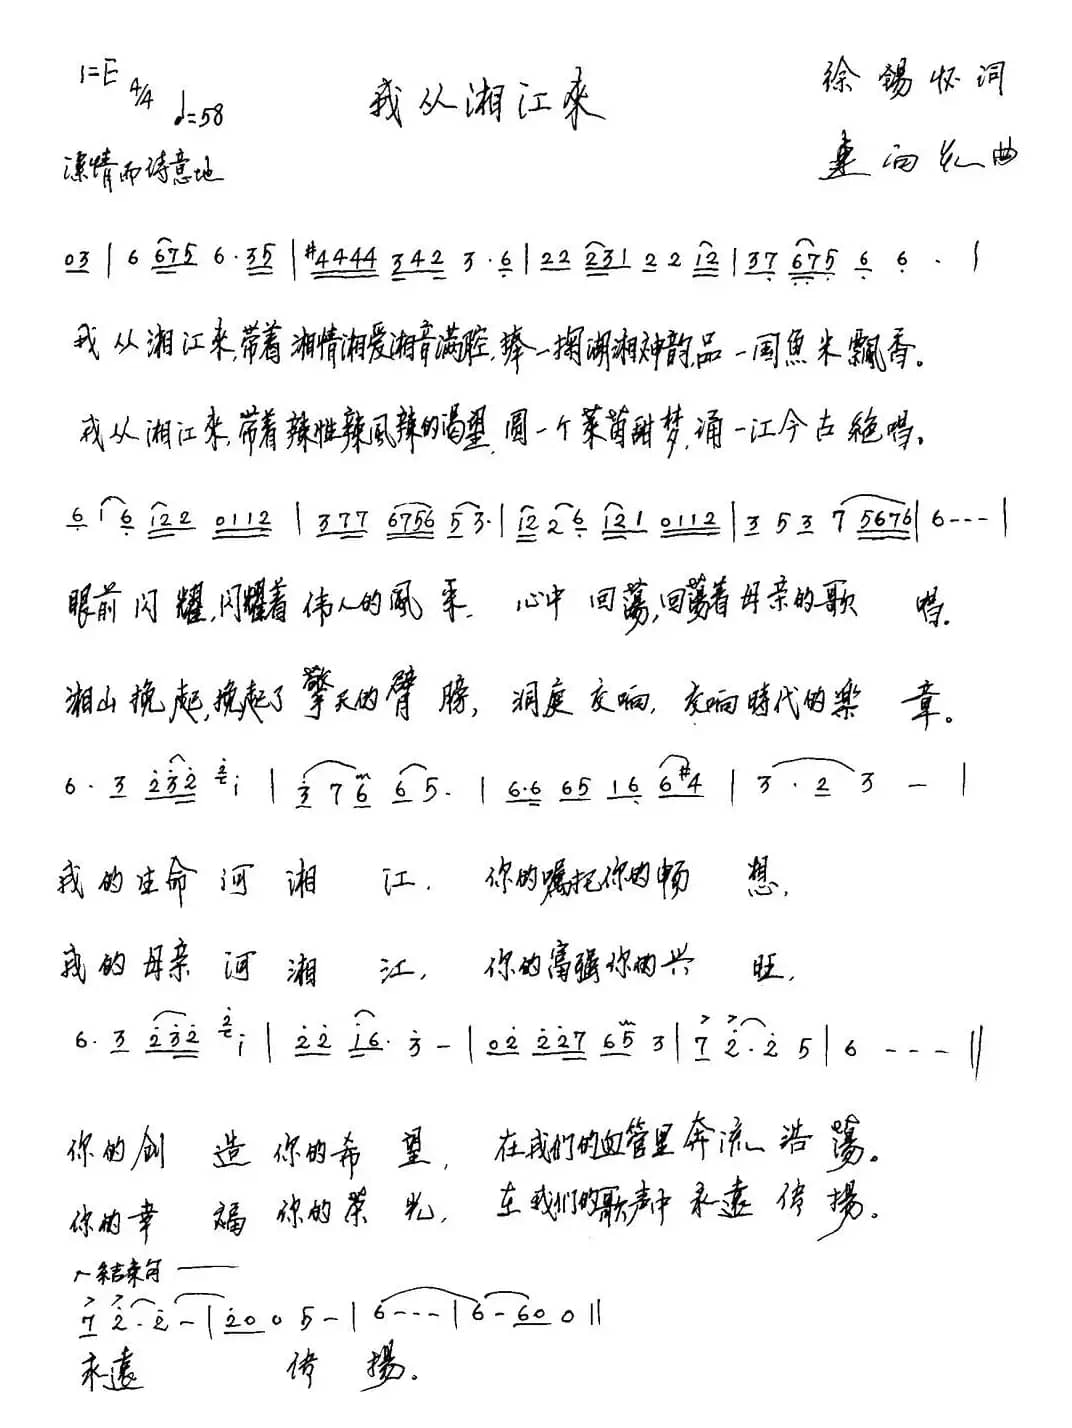 1=E 4/4 ♩=58
我从湘江來
徐锡怀词
曲
深情而诗意地
03 | 6 675 6·35 | #4444 342 3·6 | 22 231 22 12 | 37 675 6 6 · |
我从湘江來,带着湘情湘爱湘音满腔,捧一掬湖湘神韵,品一国魚米飄香。
我从湘江來,带着辣性辣風辣的渴望,圆一个莱茵甜梦,诵一江今古絕唱。
6 1 6 122 0112 | 377 6756 53· | 12 2 6 121 0112 | 3 5 3 7 5676 | 6--- |
眼前闪耀,闪耀着伟人的風采. 心中回荡,回蕩着母亲的歌唱.
湘山挽起,挽起了擎天的臂膀, 洞庭交响,交响時代的樂章。
6· 3 232 2 1 | 3 7 6 6 5· | 6·6 65 16 6#4 | 3·2 3 - |
我的生命河湘江. 你的嘱托你的畅想,
我的母亲河湘江, 你的富强你的兴旺,
6· 3 232 2 1 | 22 16· 3 - | 02 227 65 3 | 7 2·2 5 | 6 - - - ||
你的创造你的希望, 在我们的血管里奔流浩蕩。
你的幸福你的荣光, 在我们的歌声中永遠传揚。
结束句
7 2·2 - | 200 5 - | 6--- | 6-60 0 ||
永遠传揚。